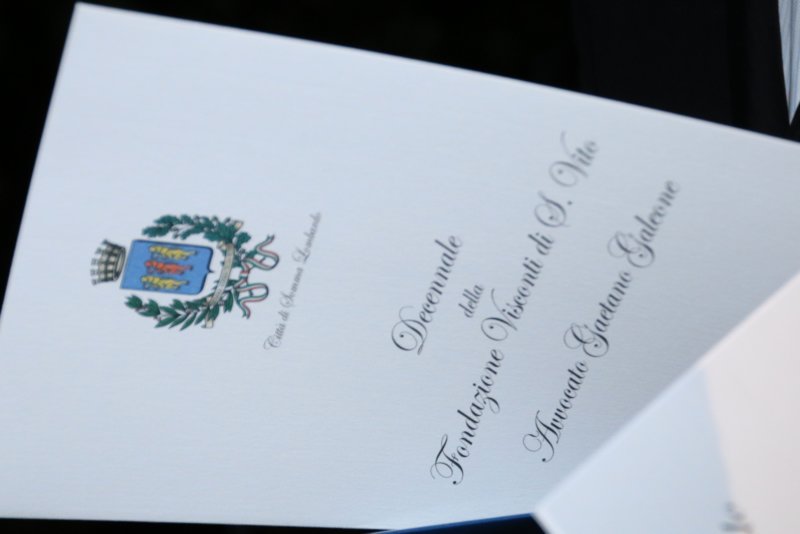 Città di Somma Lombardo
Decennale
della
Fondazione Visconti di S. Vito
Avvocato Gaetano Galeone